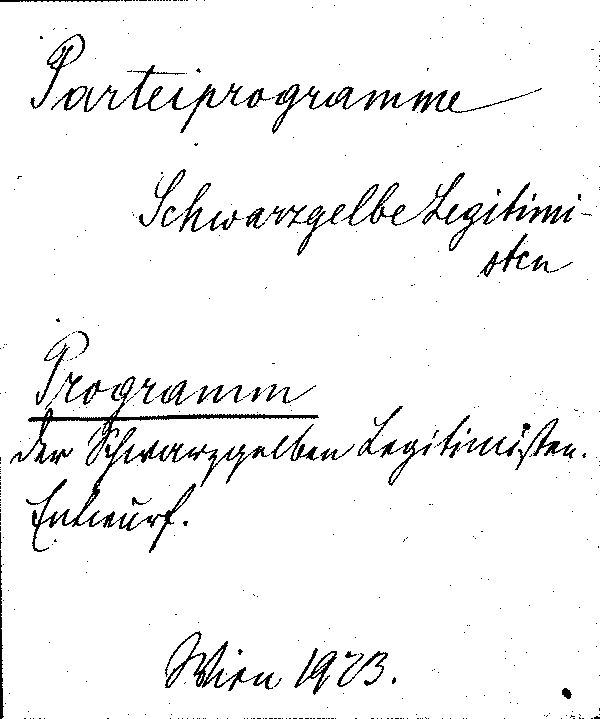 Parteiprogramme
Schwarzgelbe Legitimi-
sten
Programm
der Schwarzgelben Legitimisten.
Entwurf.
Wien 1923.